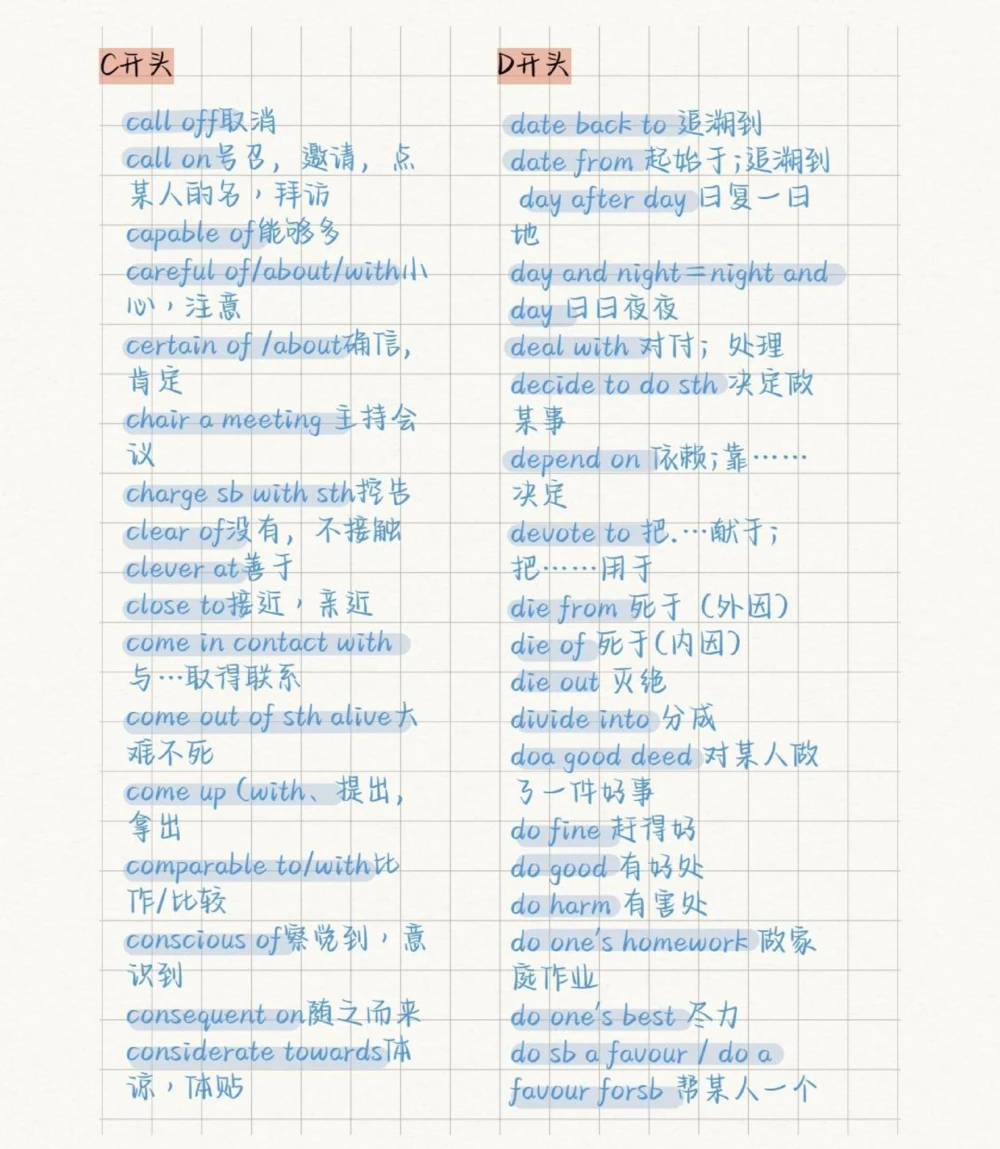 C开头
call off取消
call on号召，邀请，点
某人的名，拜访
capable of能够多
careful of/about/with小
心，注意
certain of /about确信，
肯定
chair a meeting 主持会
议
charge sb with sth控告
clear of没有，不接触
clever at善于
close to接近，亲近
come in contact with
与…取得联系
come out of sth alive大
难不死
come up (with、提出，
拿出
comparable to/with比
作/比较
conscious of察觉到，意
识到
consequent on随之而来
considerate towards体
谅，体贴
D开头
date back to 追溯到
date from 起始于;追溯到
day after day 日复一日
地
day and night=night and
day 日日夜夜
deal with 对付；处理
decide to do sth 决定做
某事
depend on 依赖;靠……
决定
devote to 把.…献于；
把……用于
die from 死于（外因）
die of 死于(内因)
die out 灭绝
divide into 分成
doa good deed 对某人做
了一件好事
do fine 赶得好
do good 有好处
do harm 有害处
do one's homework 做家
庭作业
do one's best 尽力
do sb a favour / do a
favour forsb 帮某人一个